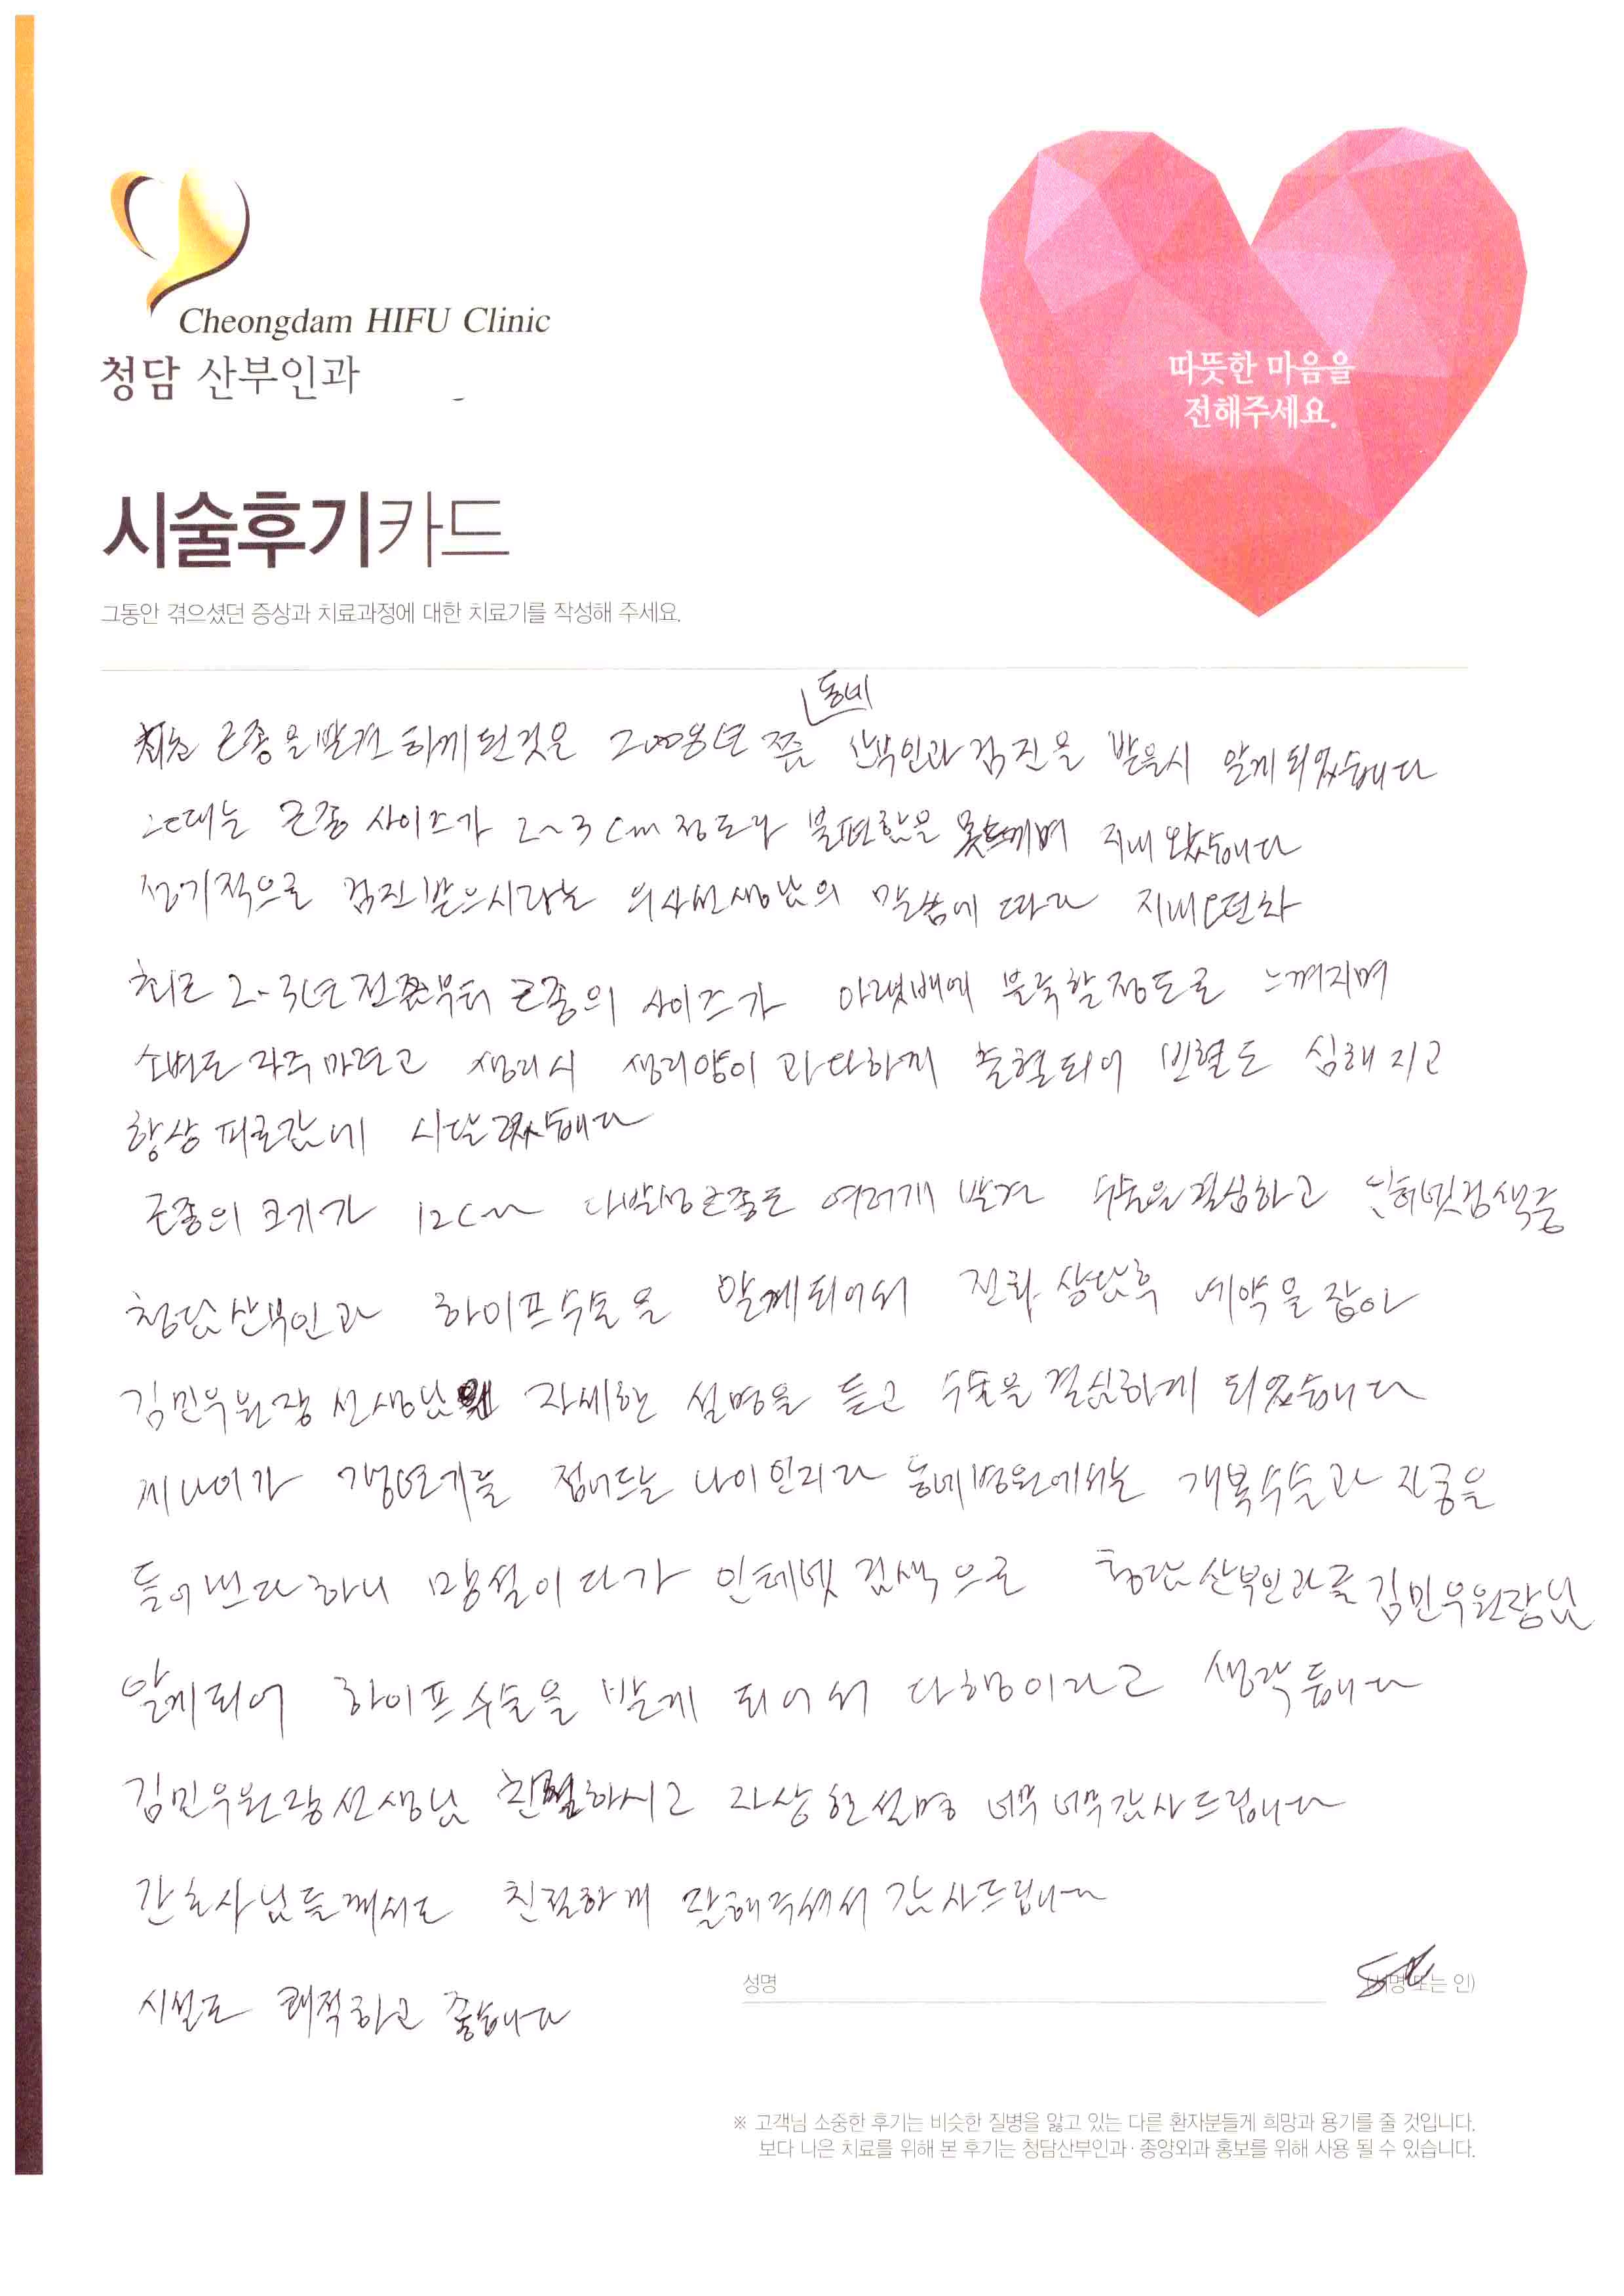 Cheongdam HIFU Clinic
청담 산부인과
따뜻한 마음을
전해주세요.
시술후기카드
그동안 겪으셨던 증상과 치료과정에 대한 치료기를 작성해 주세요.
동네
최초 근종을 발견하게 된것은 2008년 쯤 산부인과 검진을 받을시 알게 되었습니다
그때는 근종 사이즈가 2~3cm 정도라 불편함을 못느끼며 지내 왔습니다
정기적으로 검진 받으시라는 의사선생님의 말씀에 따라 지내던차
최근 2-3년 전쯤부터 근종의 사이즈가 아랫배에 불룩할 정도로 느껴지며
소변도 자주 마렵고 생리시 생리양이 과다하게 출혈되어 빈혈도 심해지고
항상 피로감에 시달렸습니다
근종의 크기가 12cm 다발성근종도 여러개 발견 수술을 결심하고 인터넷검색중
청담산부인과 하이프수술을 알게되어서 전화 상담후 예약을 잡아
김민우원장 선생님 자세한 설명을 듣고 수술을 결심하게 되었습니다
제 나이가 갱년기를 접어드는 나이인지라 동네병원에서는 개복수술과 자궁을
들어낸다하니 망설이다가 인터넷 검색으로 청담산부인과를 김민우원장님
알게되어 하이프수술을 받게 되어서 다행이라고 생각듭니다
김민우원장선생님 친절하시고 자상한설명 너무너무감사드립니다
간호사님들께서도 친절하게 말해주셔서 감사드립니다
시설도 쾌적하고 좋습니다
성명 (서명 또는 인)
※ 고객님 소중한 후기는 비슷한 질병을 앓고 있는 다른 환자분들게 희망과 용기를 줄 것입니다.
보다 나은 치료를 위해 본 후기는 청담산부인과·종양외과 홍보를 위해 사용 될 수 있습니다.